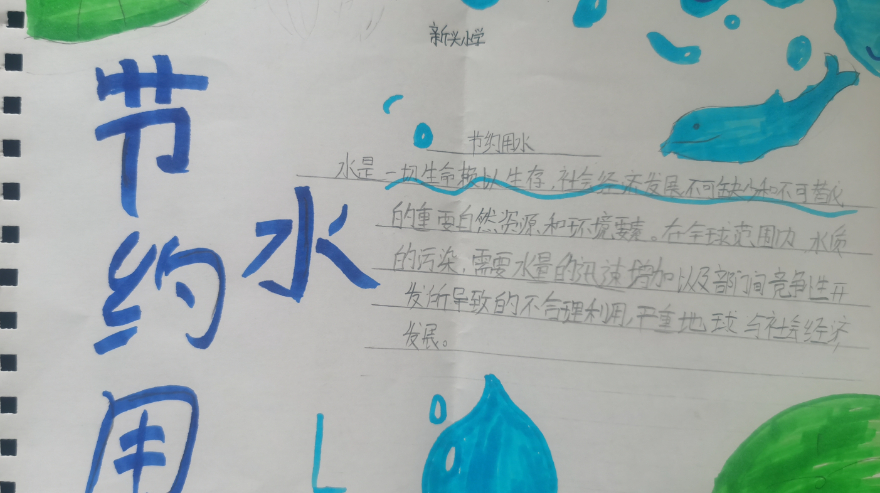 新兴小学
节约用水
节约用水
水是一切生命赖以生存,社会经济发展不可缺少和不可替代
的重要自然资源和环境要素。在全球范围内,水质
的污染,需要水量的迅速增加以及部门间竞争性开
发所导致的不合理利用,严重地球与社会经济
发展。